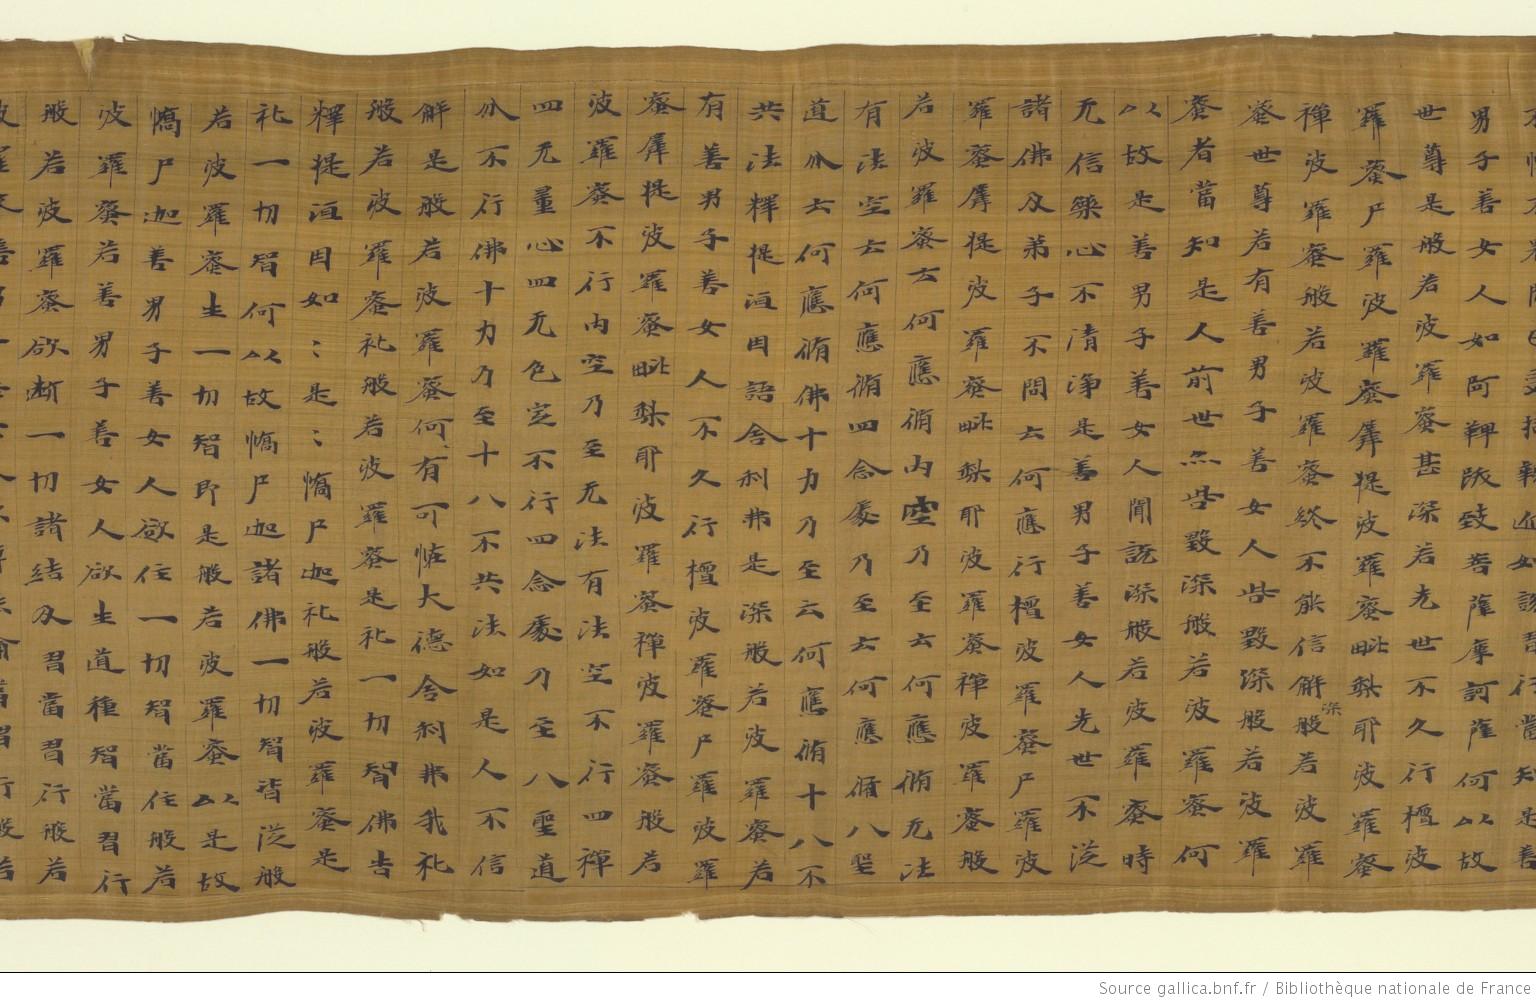 聞已受持親近如說習行當知是善
男子善女人如阿鞞跋致菩薩摩訶薩何以故
世尊是般若波羅蜜甚深若先世不久行檀波
羅蜜尸羅波羅蜜羼提波羅蜜毗梨耶波羅蜜
禪波羅蜜般若波羅蜜終不能信解深般若波羅
蜜世尊若有善男子善女人呰毀深般若波羅
蜜者當知是人前世亦呰毀深般若波羅蜜何
以故是善男子善女人聞說深般若波羅蜜時
无信樂心不清淨是善男子善女人先世不從
諸佛及弟子不問云何應行檀波羅蜜尸羅波
羅蜜羼提波羅蜜毗梨耶波羅蜜禪波羅蜜般
若波羅蜜云何應脩內空乃至云何應脩无法
有法空云何應脩四念處乃至云何應脩八聖
道分云何應脩佛十力乃至云何應脩十八不
共法釋提洹因語舍利弗是深般若波羅蜜若
有善男子善女人不久行檀波羅蜜尸羅波羅
蜜羼提波羅蜜毗梨耶波羅蜜禪波羅蜜般若
波羅蜜不行內空乃至无法有法空不行四禪
四无量心四无色定不行四念處乃至八聖道
分不行佛十力乃至十八不共法如是人不信
解是般若波羅蜜何有可恠大德舍利弗我礼
般若波羅蜜礼般若波羅蜜是礼一切智佛告
釋提洹因如:是:憍尸迦礼般若波羅蜜是
礼一切智何以故憍尸迦諸佛一切智皆從般
若波羅蜜生一切智即是般若波羅蜜以是故
憍尸迦善男子善女人欲住一切智當住般若
波羅蜜若善男子善女人欲生道種智當習行
般若波羅蜜欲斷一切諸結及習當習行般若
Source gallica.bnf.fr / Bibliothèque nationale de France